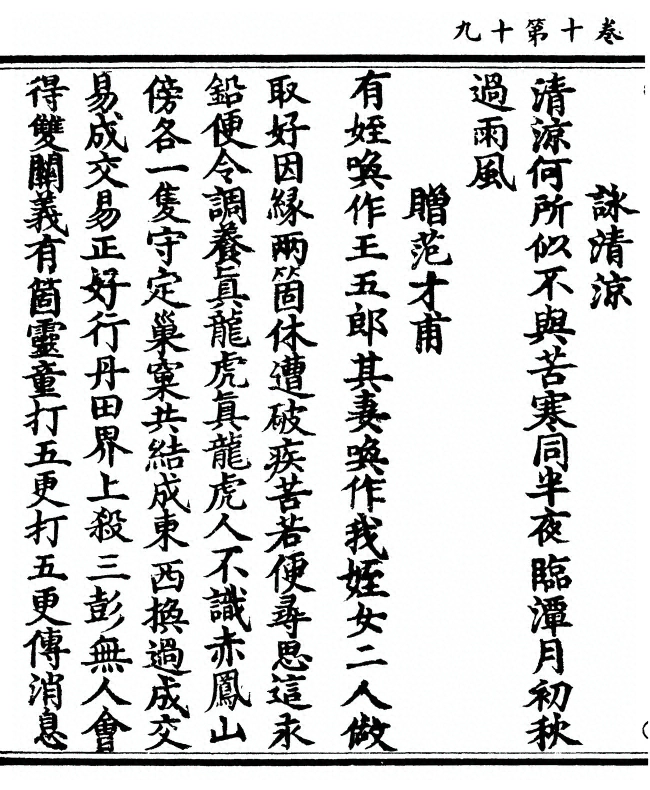 卷十第十九
詠清涼
清涼何所似不與苦寒同半夜臨潭月初秋
過雨風
贈范才甫
有姪喚作王五郎其妻喚作我姪女二人做
取好因緣兩箇休遭破疾苦若便尋思這汞
鉛便令調養真龍虎真龍虎人不識赤鳳山
傍各一隻守定巢窠共結成東西換過成交
易成交易正好行丹田界上殺三彭無人會
得雙關義有箇靈童打五更打五更傳消息